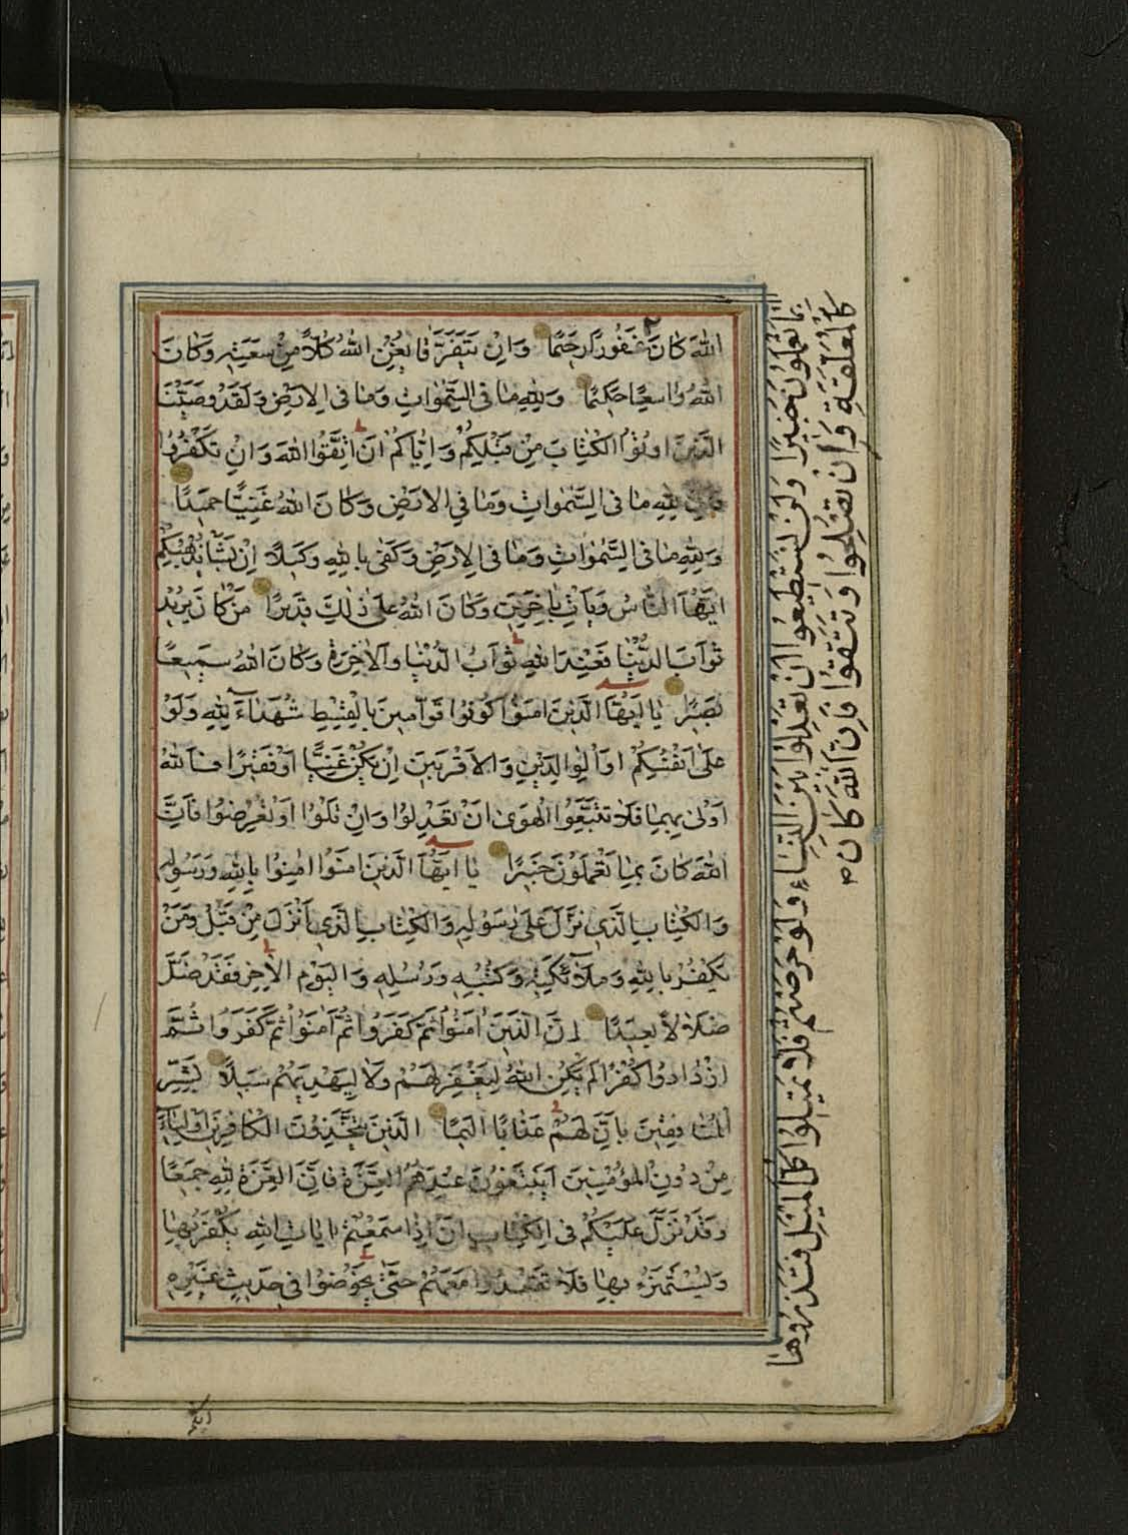 الله كَانَ غَفُورًا رَحِيمًا وَاِنْ يَتَفَرَّقَا يُغْنِ اللهُ كُلًّا مِنْ سَعَتِهِ وَكَانَ
اللهُ وَاسِعًا حَكِيمًا وَلِلّهِ مَا فِى السَّمٰوَاتِ وَمَا فِى الاَرْضِ وَلَقَدْ وَصَّيْنَا
الَّذِينَ اُوتُوا الْكِتَابَ مِنْ قَبْلِكُمْ وَاِيَّاكُمْ اَنْ اتَّقُوا اللهَ وَاِنْ تَكْفُرُوا
فَاِنَّ لِلّهِ مَا فِى السَّمٰوَاتِ وَمَا فِي الاَرْضِ وَكَانَ اللهُ غَنِيًّا حَمِيدًا
وَلِلّهِ مَا فِى السَّمٰوَاتِ وَمَا فِى الاَرْضِ وَكَفَى بِاللهِ وَكِيلًا اِنْ يَشَأْ يُذْهِبْكُمْ
اَيُّهَا النَّاسُ وَيَأْتِ بِاٰخَرِينَ وَكَانَ اللهُ عَلَى ذٰلِكَ قَدِيرًا مَنْ كَانَ يُرِيدُ
ثَوَابَ الدُّنْيَا فَعِنْدَ اللهِ ثَوَابُ الدُّنْيَا وَالْاٰخِرَةِ وَكَانَ اللهُ سَمِيعًا
بَصِيرًا يَا اَيُّهَا الَّذِينَ اٰمَنُوا كُونُوا قَوَّامِينَ بِالْقِسْطِ شُهَدَاءَ لِلّهِ وَلَوْ
عَلَى اَنْفُسِكُمْ اَوِ الْوَالِدَيْنِ وَالاَقْرَبِينَ اِنْ يَكُنْ غَنِيًّا اَوْ فَقِيرًا فَاللهُ
اَوْلَى بِهِمَا فَلَا تَتَّبِعُوا الْهَوَى اَنْ تَعْدِلُوا وَاِنْ تَلْوُا اَوْ تُعْرِضُوا فَاِنَّ
اللهَ كَانَ بِمَا تَعْمَلُونَ خَبِيرًا يَا اَيُّهَا الَّذِينَ اٰمَنُوا اٰمِنُوا بِاللهِ وَرَسُولِهِ
وَالْكِتَابِ الَّذِى نَزَّلَ عَلَى رَسُولِهِ وَالْكِتَابِ الَّذِى اَنْزَلَ مِنْ قَبْلُ وَمَنْ
يَكْفُرْ بِاللهِ وَمَلَآئِكَتِهِ وَكُتُبِهِ وَرُسُلِهِ وَالْيَوْمِ الْاٰخِرِ فَقَدْ ضَلَّ
ضَلَالًا بَعِيدًا اِنَّ الَّذِينَ اٰمَنُوا ثُمَّ كَفَرُوا ثُمَّ اٰمَنُوا ثُمَّ كَفَرُوا ثُمَّ
ازْدَادُوا كُفْرًا لَمْ يَكُنِ اللهُ لِيَغْفِرَ لَهُمْ وَلَا لِيَهْدِيَهُمْ سَبِيلًا بَشِّرِ
الْمُنَافِقِينَ بِاَنَّ لَهُمْ عَذَابًا اَلِيمًا الَّذِينَ يَتَّخِذُونَ الْكَافِرِينَ اَوْلِيَاءَ
مِنْ دُونِ الْمُؤْمِنِينَ اَيَبْتَغُونَ عِنْدَهُمُ الْعِزَّةَ فَاِنَّ الْعِزَّةَ لِلّهِ جَمِيعًا
وَقَدْ نَزَّلَ عَلَيْكُمْ فِى الْكِتَابِ اَنْ اِذَا سَمِعْتُمْ اٰيَاتِ اللهِ يُكْفَرُ بِهَا
وَيُسْتَهْزَءُ بِهَا فَلَا تَقْعُدُوا مَعَهُمْ حَتَّى يَخُوضُوا فِى حَدِيثٍ غَيْرِهِ
بِمَا تَعْمَلُونَ خَبِيرًا وَلَنْ تَسْتَطِيعُوا اَنْ تَعْدِلُوا بَيْنَ النِّسَاءِ وَلَوْ حَرَصْتُمْ فَلَا تَمِيلُوا كُلَّ الْمَيْلِ فَتَذَرُوهَا
كَالْمُعَلَّقَةِ وَاِنْ تُصْلِحُوا وَتَتَّقُوا فَاِنَّ اللهَ كَانَ ٢
اِنَّكُمْ